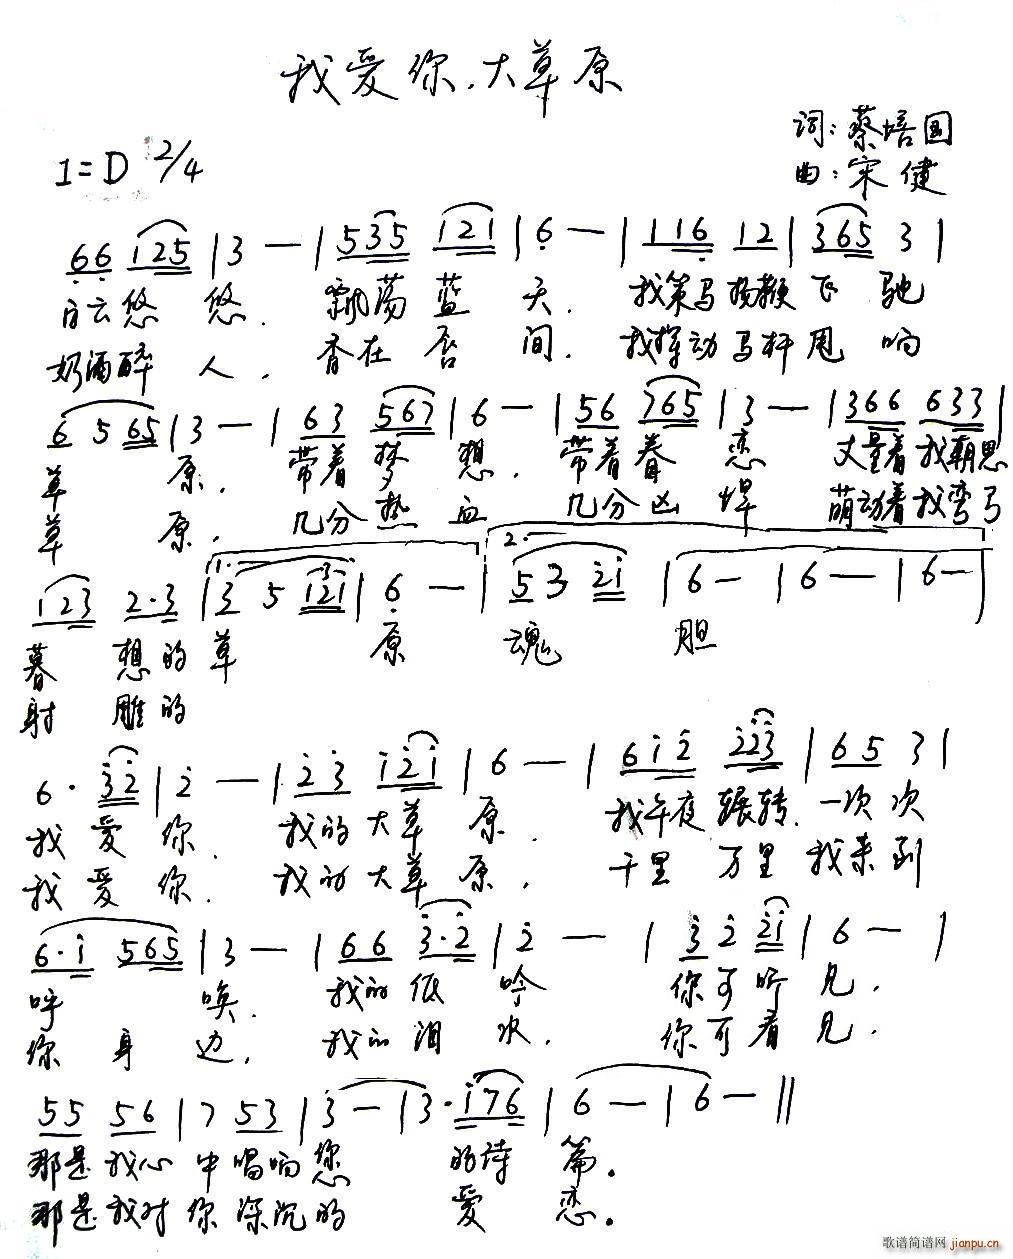 我爱你.大草原
词:蔡培国
1=D 2/4
曲:宋健
66 125 | 3 — | 535 121 | 6 — | 116 12 | 365 3 |
白云悠 悠. 飘荡蓝 天. 我策马扬鞭飞 驰
奶酒醉 人, 香在唇 间. 我挥动马杆甩 响
6 5 65 | 3 — | 63 567 | 6 — | 56 765 | 3 — | 366 633 |
草 原. 带着梦 想. 带着眷 恋 丈量着我朝思
草 原. 几分热 血 几分凶 悍 萌动着我弯弓
123 2·3 | 1. 3 5 121 | 6 — | 2. 5 3 21 | 6 — | 6 — | 6 — |
暮 想的草 原 魂 胆
射 雕的
6· 32 | 2 — | 23 121 | 6 — | 612 223 | 65 3 |
我爱 你. 我的大草 原. 我午夜 辗转. 一次次
我爱 你. 我的大草 原. 千里 万里 我来到
6·1 565 | 3 — | 66 3·2 | 2 — | 3 2 21 | 6 — |
呼 唤. 我的低 吟 你可听 见.
你 身 边. 我的泪 水. 你可看 见.
55 56 | 7 53 | 3 — | 3· 176 | 6 — | 6 — ‖
那是我心 中唱响您 的诗 篇.
那是我对 你深沉的 爱 恋.
歌谱简谱网
jianpu.cn